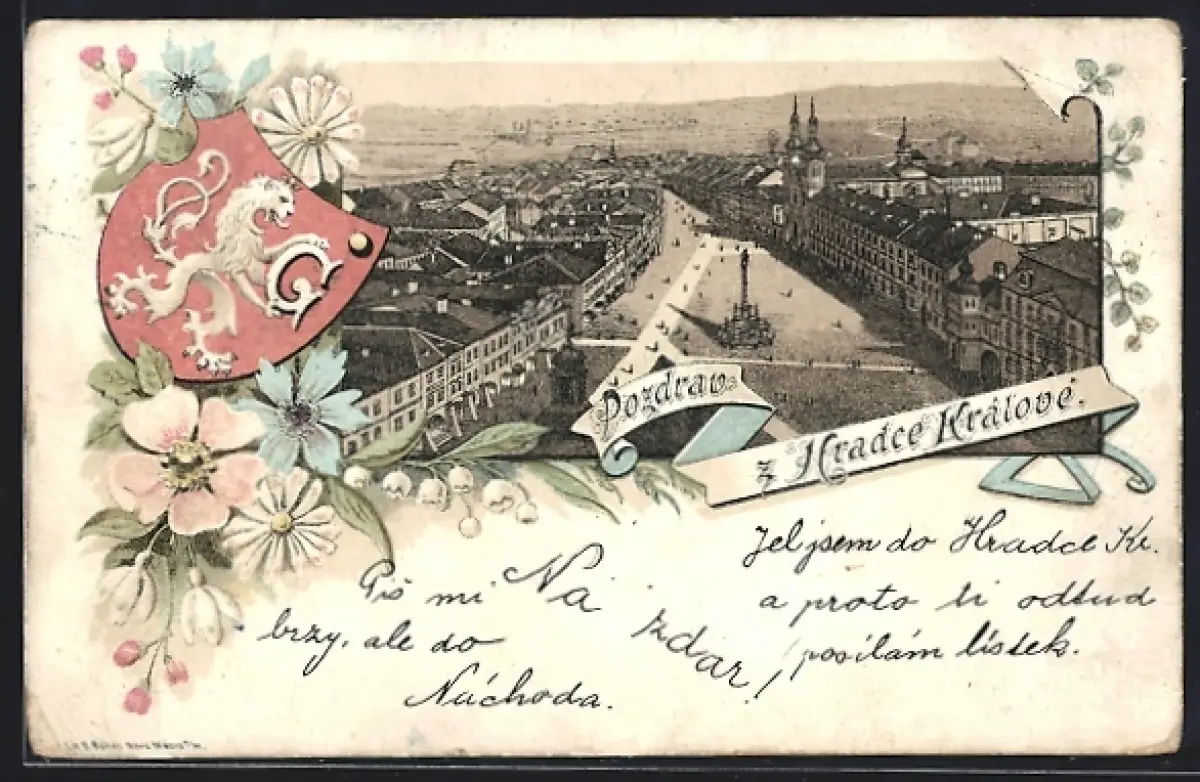 G
Pozdrav
z Hradce Králové.
Jel jsem do Hradce Kr.
a proto ti odtud
posílám lístek.
Na
zdar!
Piš mi
brzy, ale do
Náchoda.